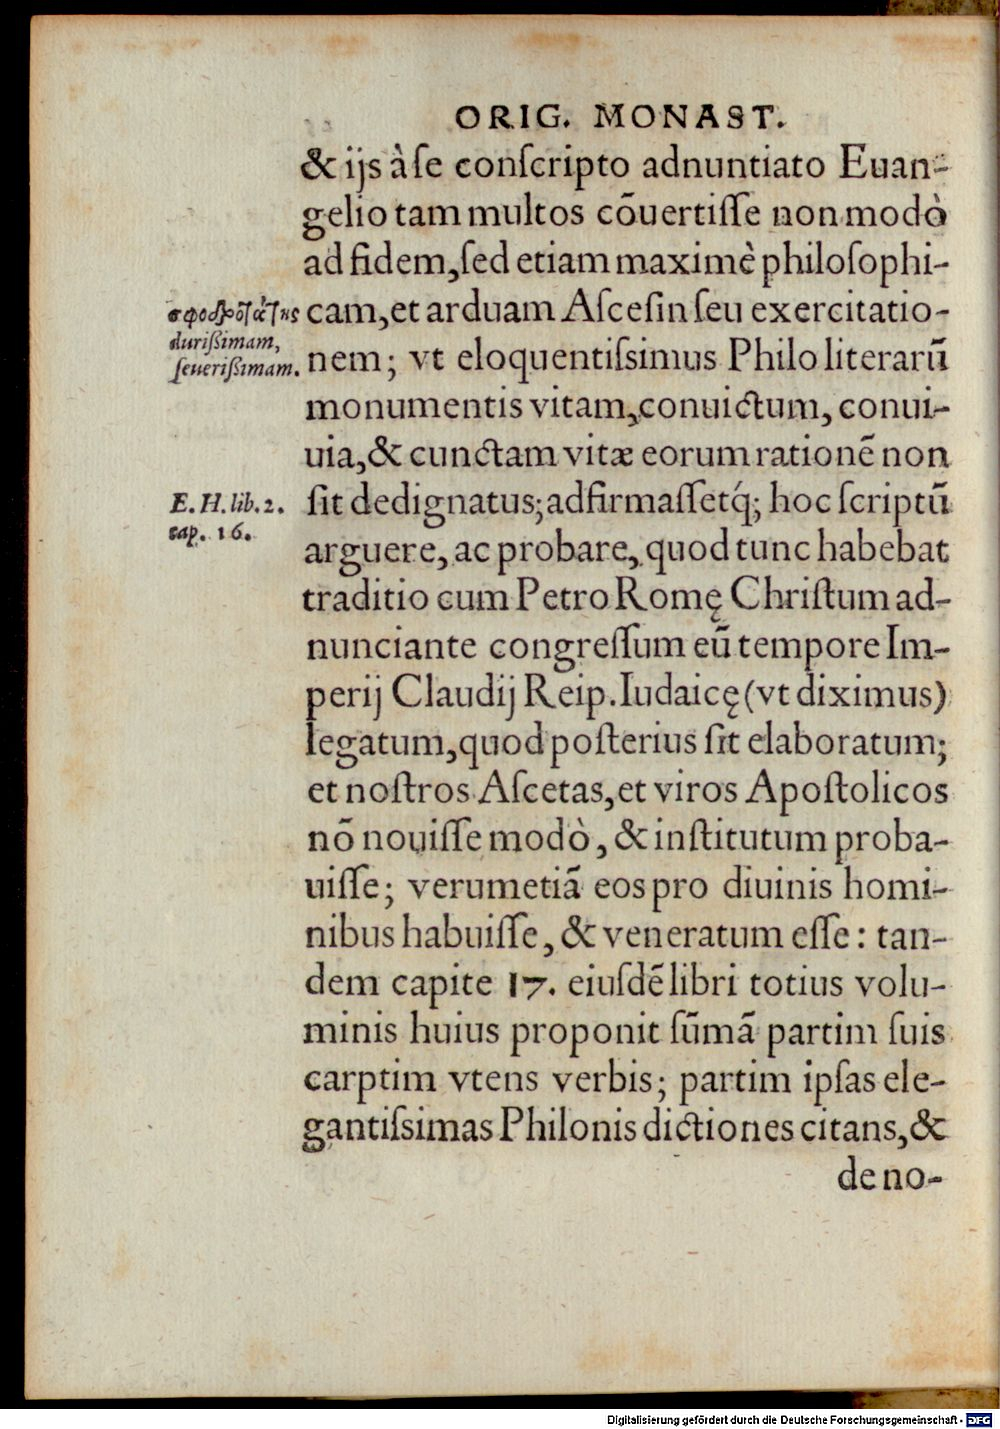 ORIG. MONAST.
& ijs à ſe conſcripto adnuntiato Euan-
gelio tam multos cōuertiſſe non modò
ad fidem, ſed etiam maximè philoſophi-
cam, et arduam Aſceſin ſeu exercitatio-
durißimam,
ſeuerißimam.
nem; vt eloquentiſsimus Philo literarū
monumentis vitam, conuictum, conui-
uia, & cunctam vitæ eorum rationē non
E. H. lib. 2.
cap. 16.
ſit dedignatus; adfirmaſſetq́; hoc ſcriptū
arguere, ac probare, quod tunc habebat
traditio cum Petro Romę Chriſtum ad-
nunciante congreſſum eū tempore Im-
perij Claudij Reip. Iudaicę (vt diximus)
legatum, quod poſterius ſit elaboratum;
et noſtros Aſcetas, et viros Apoſtolicos
nō nouiſſe modò, & inſtitutum proba-
uiſſe; verumetiā eos pro diuinis homi-
nibus habuiſſe, & veneratum eſſe: tan-
dem capite 17. eiuſdē libri totius volu-
minis huius proponit ſūmā partim ſuis
carptim vtens verbis; partim ipſas ele-
gantiſsimas Philonis dictiones citans, &
de no-
Digitalisierung gefördert durch die Deutsche Forschungsgemeinschaft - DFG